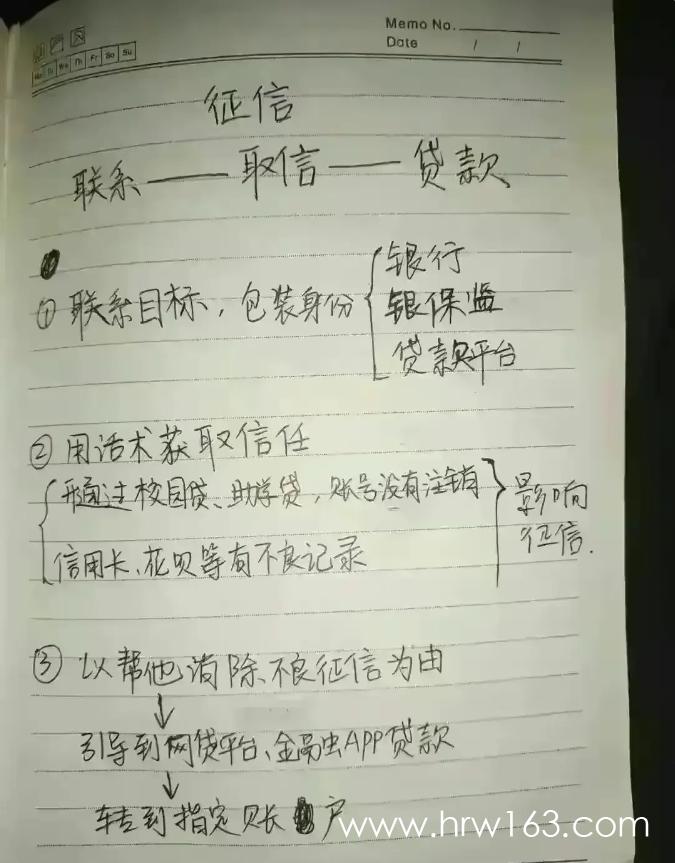 Memo No.
Date / /
Mo Tu We Th Fr Sa Su
征信
联系——取信——贷款
①联系目标，包装身份
银行
银保监
贷款平台
②用话术获取信任
通过校园贷、助学贷，账号没有注销
信用卡、花呗等有不良记录
影响
征信.
③以帮他消除不良征信为由
↓
引导到网贷平台、金融APP贷款
↓
转到指定账户
www.hrw163.com